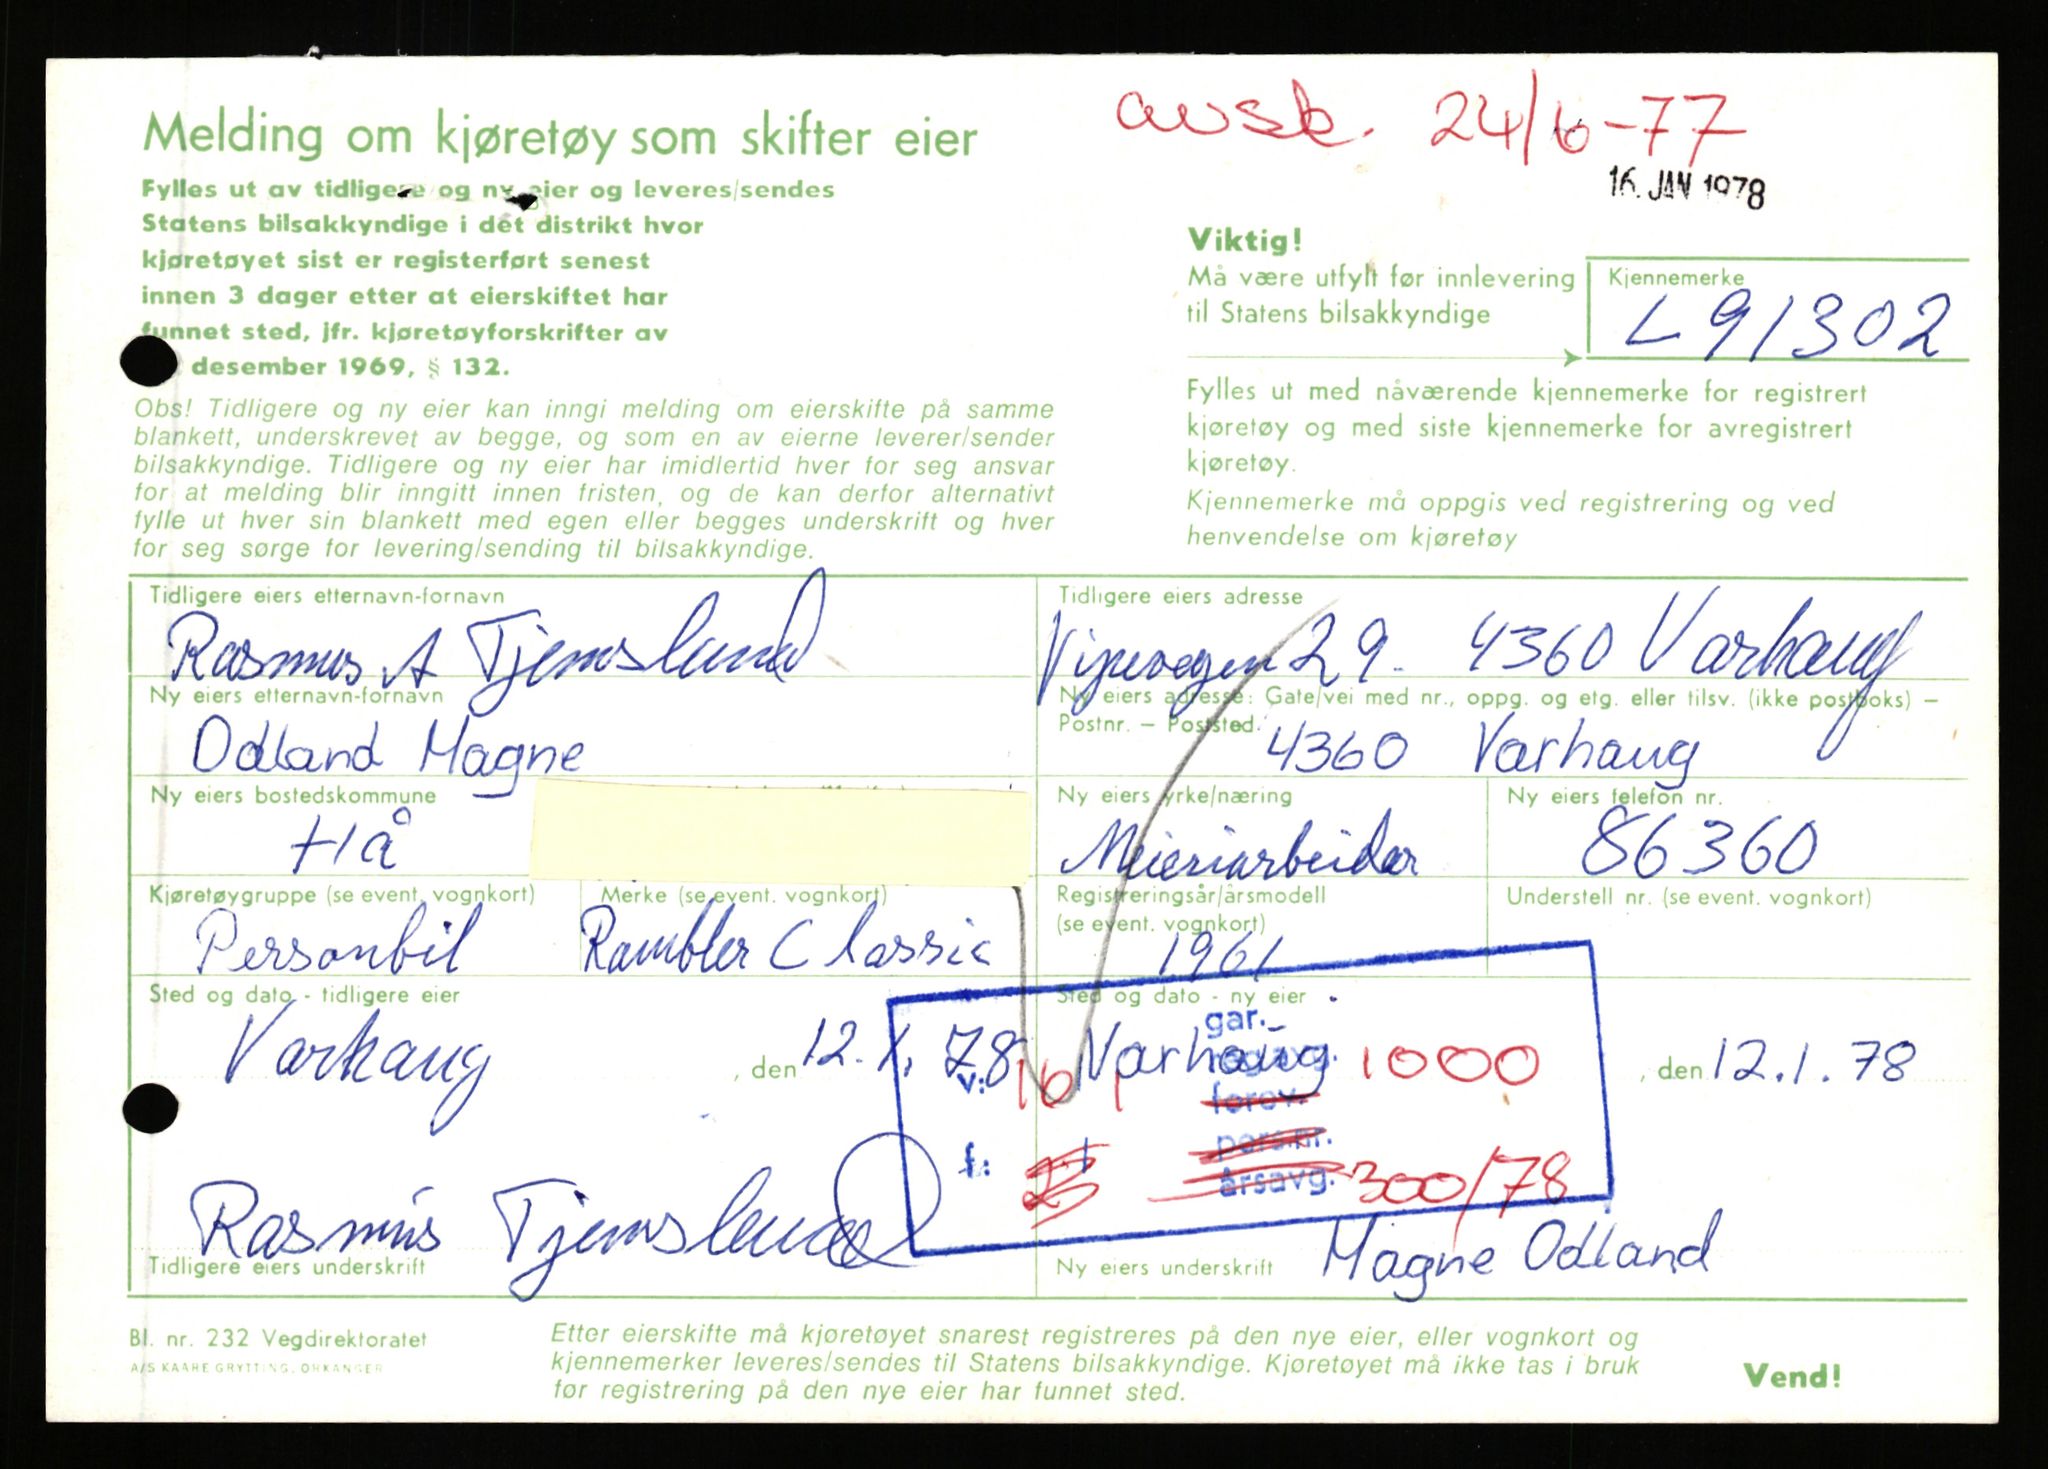 avsk. 24/6-77
16. JAN 1978
Melding om kjøretøy som skifter eier
Fylles ut av tidligere og ny eier og leveres/sendes
Statens bilsakkyndige i det distrikt hvor
kjøretøyet sist er registerført senest
innen 3 dager etter at eierskiftet har
funnet sted, jfr. kjøretøyforskrifter av
desember 1969, § 132.
Obs! Tidligere og ny eier kan inngi melding om eierskifte på samme
blankett, underskrevet av begge, og som en av eierne leverer/sender
bilsakkyndige. Tidligere og ny eier har imidlertid hver for seg ansvar
for at melding blir inngitt innen fristen, og de kan derfor alternativt
fylle ut hver sin blankett med egen eller begges underskrift og hver
for seg sørge for levering/sending til bilsakkyndige.
Viktig!
Må være utfylt før innlevering
til Statens bilsakkyndige
Kjennemerke
L 91302
Fylles ut med nåværende kjennemerke for registrert
kjøretøy og med siste kjennemerke for avregistrert
kjøretøy.
Kjennemerke må oppgis ved registrering og ved
henvendelse om kjøretøy
Tidligere eiers etternavn-fornavn
Rasmus A Tjemsland
Tidligere eiers adresse
Vipevegen 29. 4360 Varhaug
Ny eiers etternavn-fornavn
Odland Magne
Ny eiers adresse: Gate/vei med nr., oppg. og etg. eller tilsv. (ikke postboks) –
Postnr. – Poststed.
4360 Varhaug
Ny eiers bostedskommune
Hå
Ny eiers yrke/næring
Meieriarbeider
Ny eiers telefon nr.
86360
Kjøretøygruppe (se event. vognkort)
Personbil
Merke (se event. vognkort)
Rambler Classic
Registreringsår/årsmodell
(se event. vognkort)
1961
Understell nr. (se event. vognkort)
Sted og dato - tidligere eier
Varhaug , den 12.1.78
Sted og dato - ny eier
Varhaug , den 12.1.78
gar.
regavg. 1000
v: 16 1
forøv.
pers.nr.
f:
årsavg. 300/78
Rasmus Tjemsland
Tidligere eiers underskrift
Ny eiers underskrift Magne Odland
Bl. nr. 232 Vegdirektoratet
A/S KAARE GRYTTING, ORKANGER
Etter eierskifte må kjøretøyet snarest registreres på den nye eier, eller vognkort og
kjennemerker leveres/sendes til Statens bilsakkyndige. Kjøretøyet må ikke tas i bruk
før registrering på den nye eier har funnet sted.
Vend!